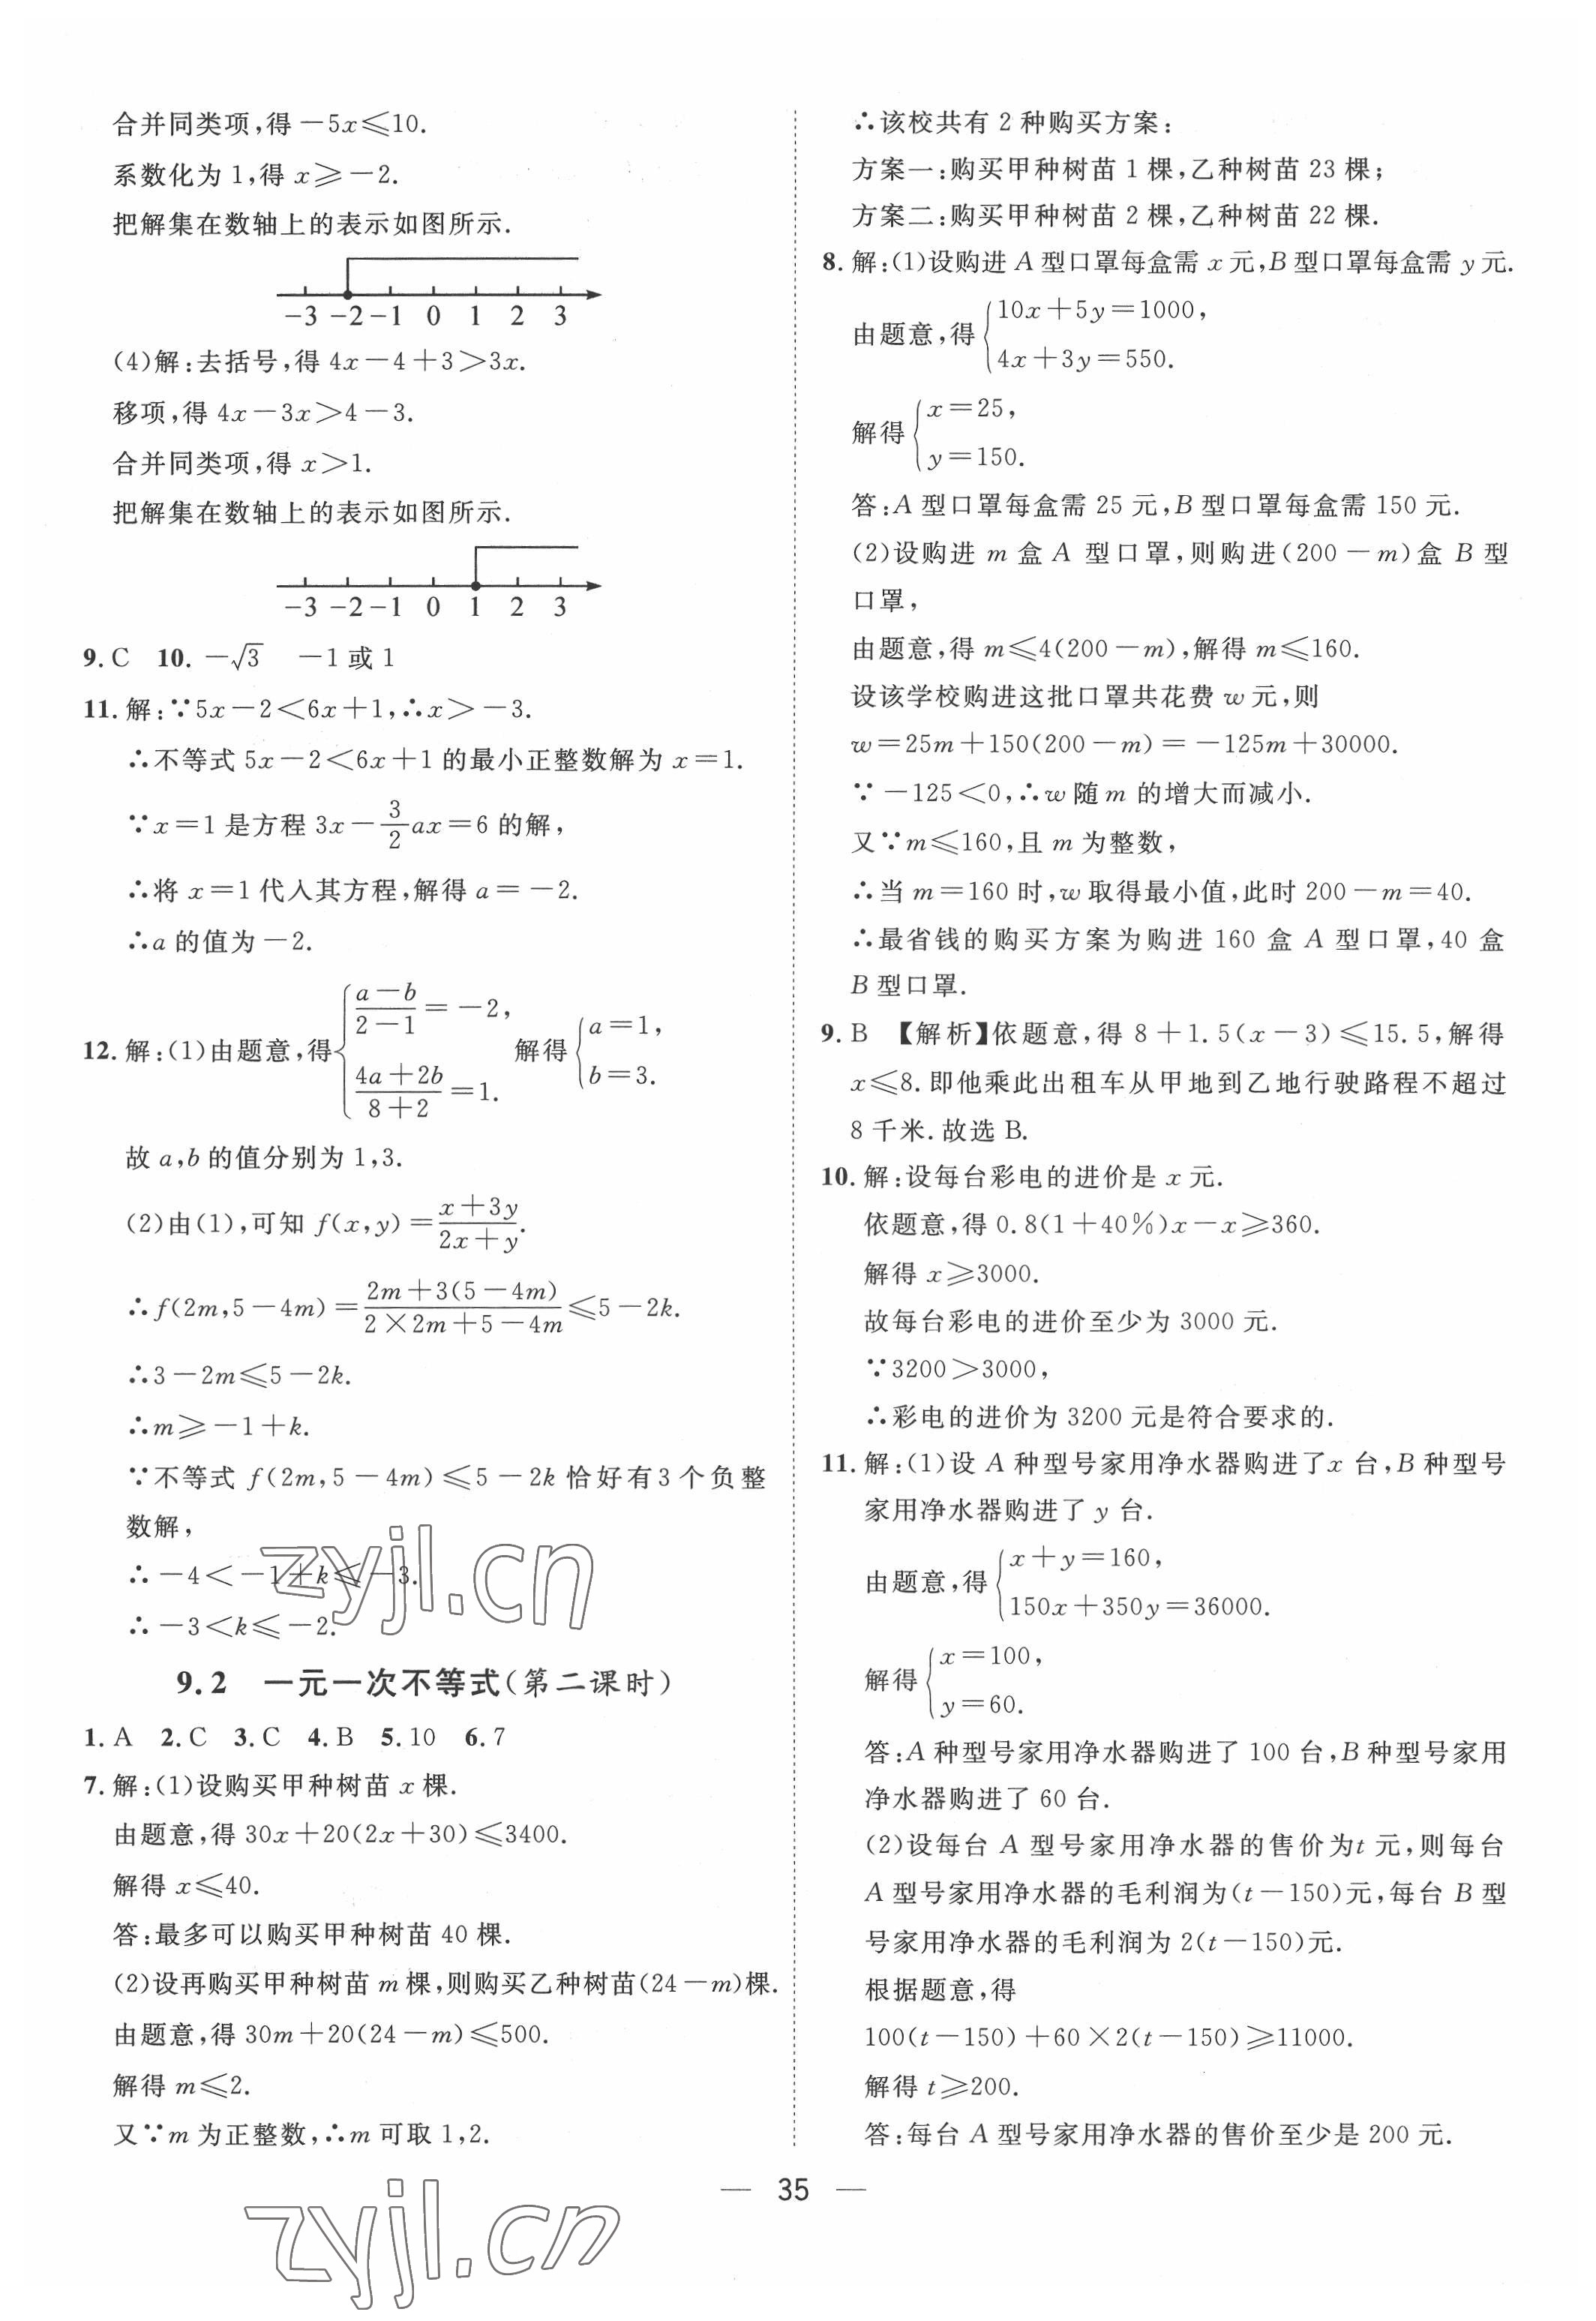 合并同类项,得－5x≤10.
系数化为1,得 x≥－2.
把解集在数轴上的表示如图所示.
－3 －2 －1 0 1 2 3
(4)解:去括号,得 4x－4＋3＞3x.
移项,得 4x－3x＞4－3.
合并同类项,得 x＞1.
把解集在数轴上的表示如图所示.
－3 －2 －1 0 1 2 3
9. C 10. －√3 －1或1
11. 解:∵5x－2＜6x＋1,∴x＞－3.
∴不等式 5x－2＜6x＋1 的最小正整数解为 x＝1.
∵x＝1 是方程 3x－3/2 ax＝6 的解,
∴将 x＝1 代入其方程,解得 a＝－2.
∴a 的值为－2.
12. 解:(1)由题意,得{(a－b)/(2－1)＝－2, (4a＋2b)/(8＋2)＝1. 解得{a＝1, b＝3.
故 a,b 的值分别为 1,3.
(2)由(1),可知 f(x,y)＝(x＋3y)/(2x＋y).
∴f(2m,5－4m)＝(2m＋3(5－4m))/(2×2m＋5－4m)≤5－2k.
∴3－2m≤5－2k.
∴m≥－1＋k.
∵不等式 f(2m,5－4m)≤5－2k 恰好有3个负整
数解,
∴－4＜－1＋k≤－3.
∴－3＜k≤－2.
zyjl.cn
9.2 一元一次不等式(第二课时)
1. A 2. C 3. C 4. B 5. 10 6. 7
7. 解:(1)设购买甲种树苗 x 棵.
由题意,得 30x＋20(2x＋30)≤3400.
解得 x≤40.
答:最多可以购买甲种树苗 40 棵.
(2)设再购买甲种树苗 m 棵,则购买乙种树苗(24－m)棵.
由题意,得 30m＋20(24－m)≤500.
解得 m≤2.
又∵m 为正整数,∴m 可取 1,2.
∴该校共有 2 种购买方案:
方案一:购买甲种树苗 1 棵,乙种树苗 23 棵;
方案二:购买甲种树苗 2 棵,乙种树苗 22 棵.
8. 解:(1)设购进 A 型口罩每盒需 x 元,B 型口罩每盒需 y 元.
由题意,得{10x＋5y＝1000, 4x＋3y＝550.
解得{x＝25, y＝150.
答:A 型口罩每盒需 25 元,B 型口罩每盒需 150 元.
(2)设购进 m 盒 A 型口罩,则购进(200－m)盒 B 型
口罩,
由题意,得 m≤4(200－m),解得 m≤160.
设该学校购进这批口罩共花费 w 元,则
w＝25m＋150(200－m)＝－125m＋30000.
∵－125＜0,∴w 随 m 的增大而减小.
又∵m≤160,且 m 为整数,
∴当 m＝160 时,w 取得最小值,此时 200－m＝40.
∴最省钱的购买方案为购进 160 盒 A 型口罩,40 盒
B 型口罩.
9. B 【解析】依题意,得 8＋1.5(x－3)≤15.5,解得
x≤8.即他乘此出租车从甲地到乙地行驶路程不超过
8 千米.故选 B.
10. 解:设每台彩电的进价是 x 元.
依题意,得 0.8(1＋40%)x－x≥360.
解得 x≥3000.
故每台彩电的进价至少为 3000 元.
∵3200＞3000,
∴彩电的进价为 3200 元是符合要求的.
11. 解:(1)设 A 种型号家用净水器购进了 x 台,B 种型号
家用净水器购进了 y 台.
由题意,得{x＋y＝160, 150x＋350y＝36000.
解得{x＝100, y＝60.
答:A 种型号家用净水器购进了 100 台,B 种型号家用
净水器购进了 60 台.
(2)设每台 A 型号家用净水器的售价为 t 元,则每台
A 型号家用净水器的毛利润为(t－150)元,每台 B 型
号家用净水器的毛利润为 2(t－150)元.
根据题意,得
100(t－150)＋60×2(t－150)≥11000.
解得 t≥200.
答:每台 A 型号家用净水器的售价至少是 200 元.
— 35 —
zyjl.cn